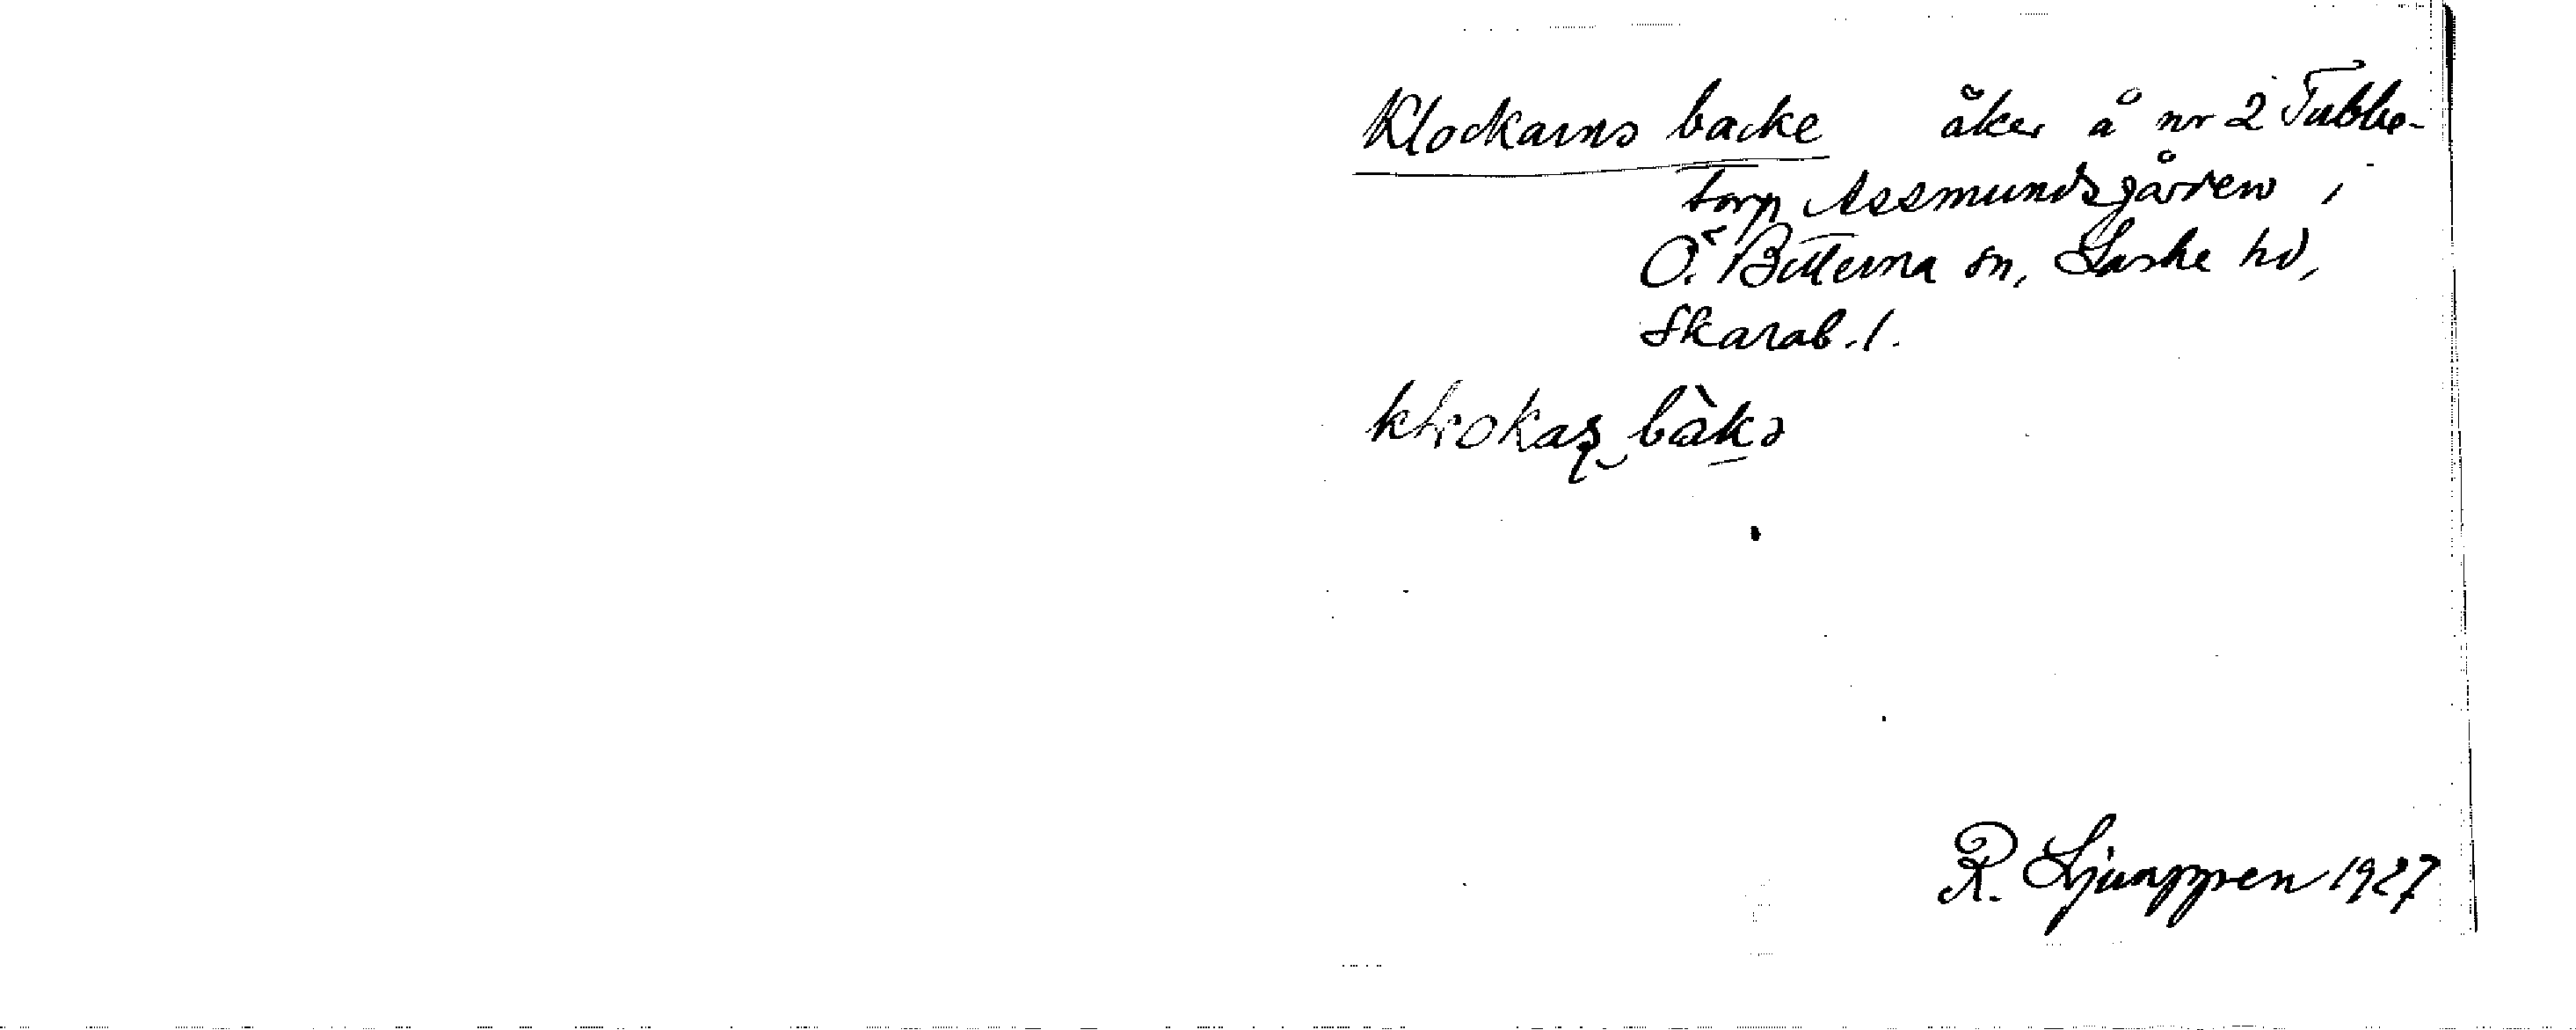 Klockarns backe åker å nr 2 Tubbe-
torp Assmundsgården i
Ö. Bitterna sn, Laske hd,
Skarab. l.
R. Ljunggren 1927